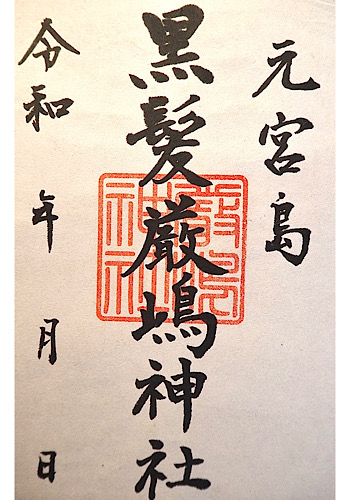 元宮島
黒髪厳嶋神社
厳島神社
令和 年 月 日